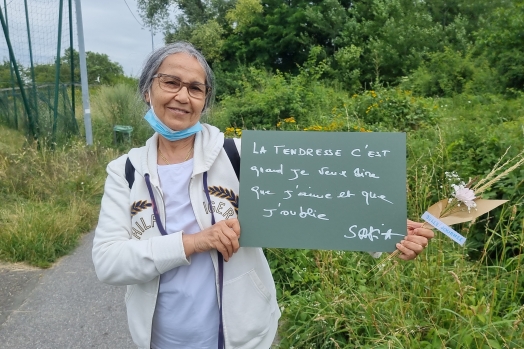 LA TENDRESSE C'EST
quand je veux dire
que j'aime et que
j'oublie